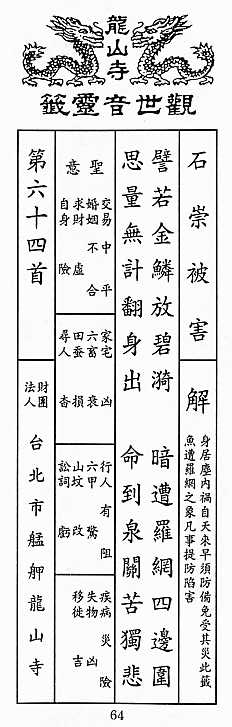 龍山寺
觀世音靈籤
石崇被害
解
身居塵內禍自天來早須防備免受其災此籤
魚遭羅網之象凡事提防陷害
譬若金鱗放碧漪
暗遭羅網四邊圍
思量無計翻身出
命到泉關苦獨悲
聖意
交易 中平
婚姻 不合
求財 虛
自身 險
家宅 凶
六畜 衰
田蚕 損
尋人 杳
行人 有阻
六甲 驚
山坟 改
訟詞 虧
疾病 災險
失物 凶
移徙 吉
第六十四首
財團
法人
台北市艋舺龍山寺
64